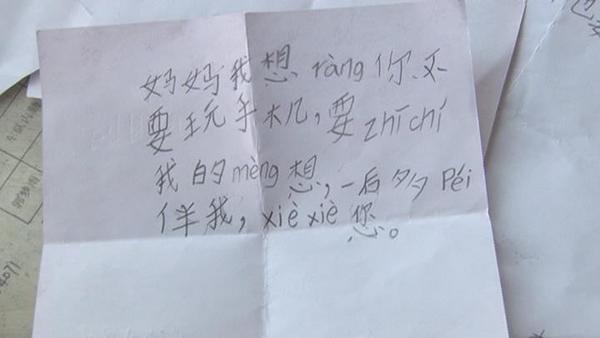 妈妈我想ràng你不
要玩手机，要zhīchí
我的mèng想，一后多Péi
伴我，xièxiè您。